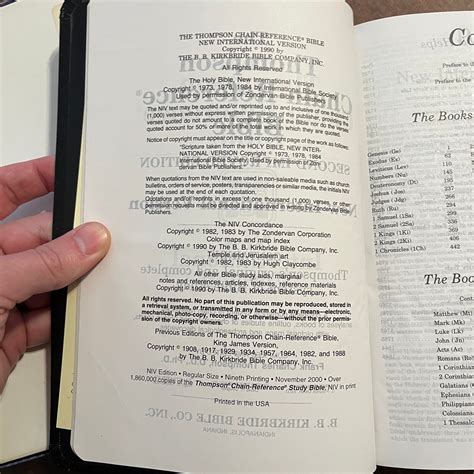 THE THOMPSON CHAIN-REFERENCE® BIBLE
NEW INTERNATIONAL VERSION
Copyright © 1990 by
THE B. B. KIRKBRIDE BIBLE COMPANY, INC.
All Rights Reserved
The Holy Bible, New International Version
Copyright © 1973, 1978, 1984 by International Bible Society
Used by permission of Zondervan Bible Publishers
The NIV text may be quoted and/or reprinted up to and inclusive of one thousand
(1,000) verses without express written permission of the publisher, providing the
verses quoted do not amount to a complete book of the Bible nor do the verses
quoted account for 50% or more of the total work in which they are quoted.
Notice of copyright must appear on the title or copyright page of the work as follows:
"Scripture taken from the HOLY BIBLE, NEW INTER-
NATIONAL VERSION Copyright © 1973, 1978, 1984
International Bible Society. Used by permission of Zon-
dervan Bible Publishers."
When quotations from the NIV text are used in non-saleable media such as church
bulletins, orders of service, posters, transparencies or similar media, the initials NIV
may be used at the end of each quotation.
Quotations and/or reprints in excess of one thousand (1,000) verses, or other
permission requests must be directed and approved in writing by Zondervan Bible
Publishers.
The NIV Concordance
Copyright © 1982, 1983 by The Zondervan Corporation
Color maps and map index
Copyright © 1990 by The B. B. Kirkbride Bible Company, Inc.
Temple and Jerusalem art
Copyright © 1982, 1983 by Hugh Claycombe
All other Bible study aids, marginal
notes and references, articles, indexes, reference materials
Copyright © 1990 by The B. B. Kirkbride Bible Company, Inc.
All rights reserved. No part of this publication may be reproduced, stored in
a retrieval system, or transmitted in any form or by any means—electronic,
mechanical, photo-copy, recording, or otherwise—without the prior permission
of the copyright owners.
Previous Editions of The Thompson Chain-Reference® Bible,
King James Version,
Copyright © 1908, 1917, 1929, 1934, 1957, 1964, 1982, and 1988
by The B. B. Kirkbride Bible Company, Inc.
NIV Edition • Regular Size • Nineth Printing • November 2000 • Over
1,860,000 copies of the Thompson® Chain-Reference® Study Bible, NIV in print
Printed in the USA
Co
Preface to th
Preface to th
The Books
Genesis (Ge) 1
Exodus (Ex)
Leviticus (Le)
Numbers (Nu)
Deuteronomy (Dt)
Joshua (Jos)
Judges (Jdg)
Ruth (Ru)
1 Samuel (1Sa)
2 Samuel (2Sa)
1 Kings (1Ki)
2 Kings (2Ki)
1 Chronicles (1Ch)
The Boo
Matthew (Mt)
Mark (Mk)
Luke (Lk)
John (Jn)
Acts (Ac)
Romans (Ro)
1 Corinthian
2 Corinthian
Galatians
Ephesians
Philippian
Colossians